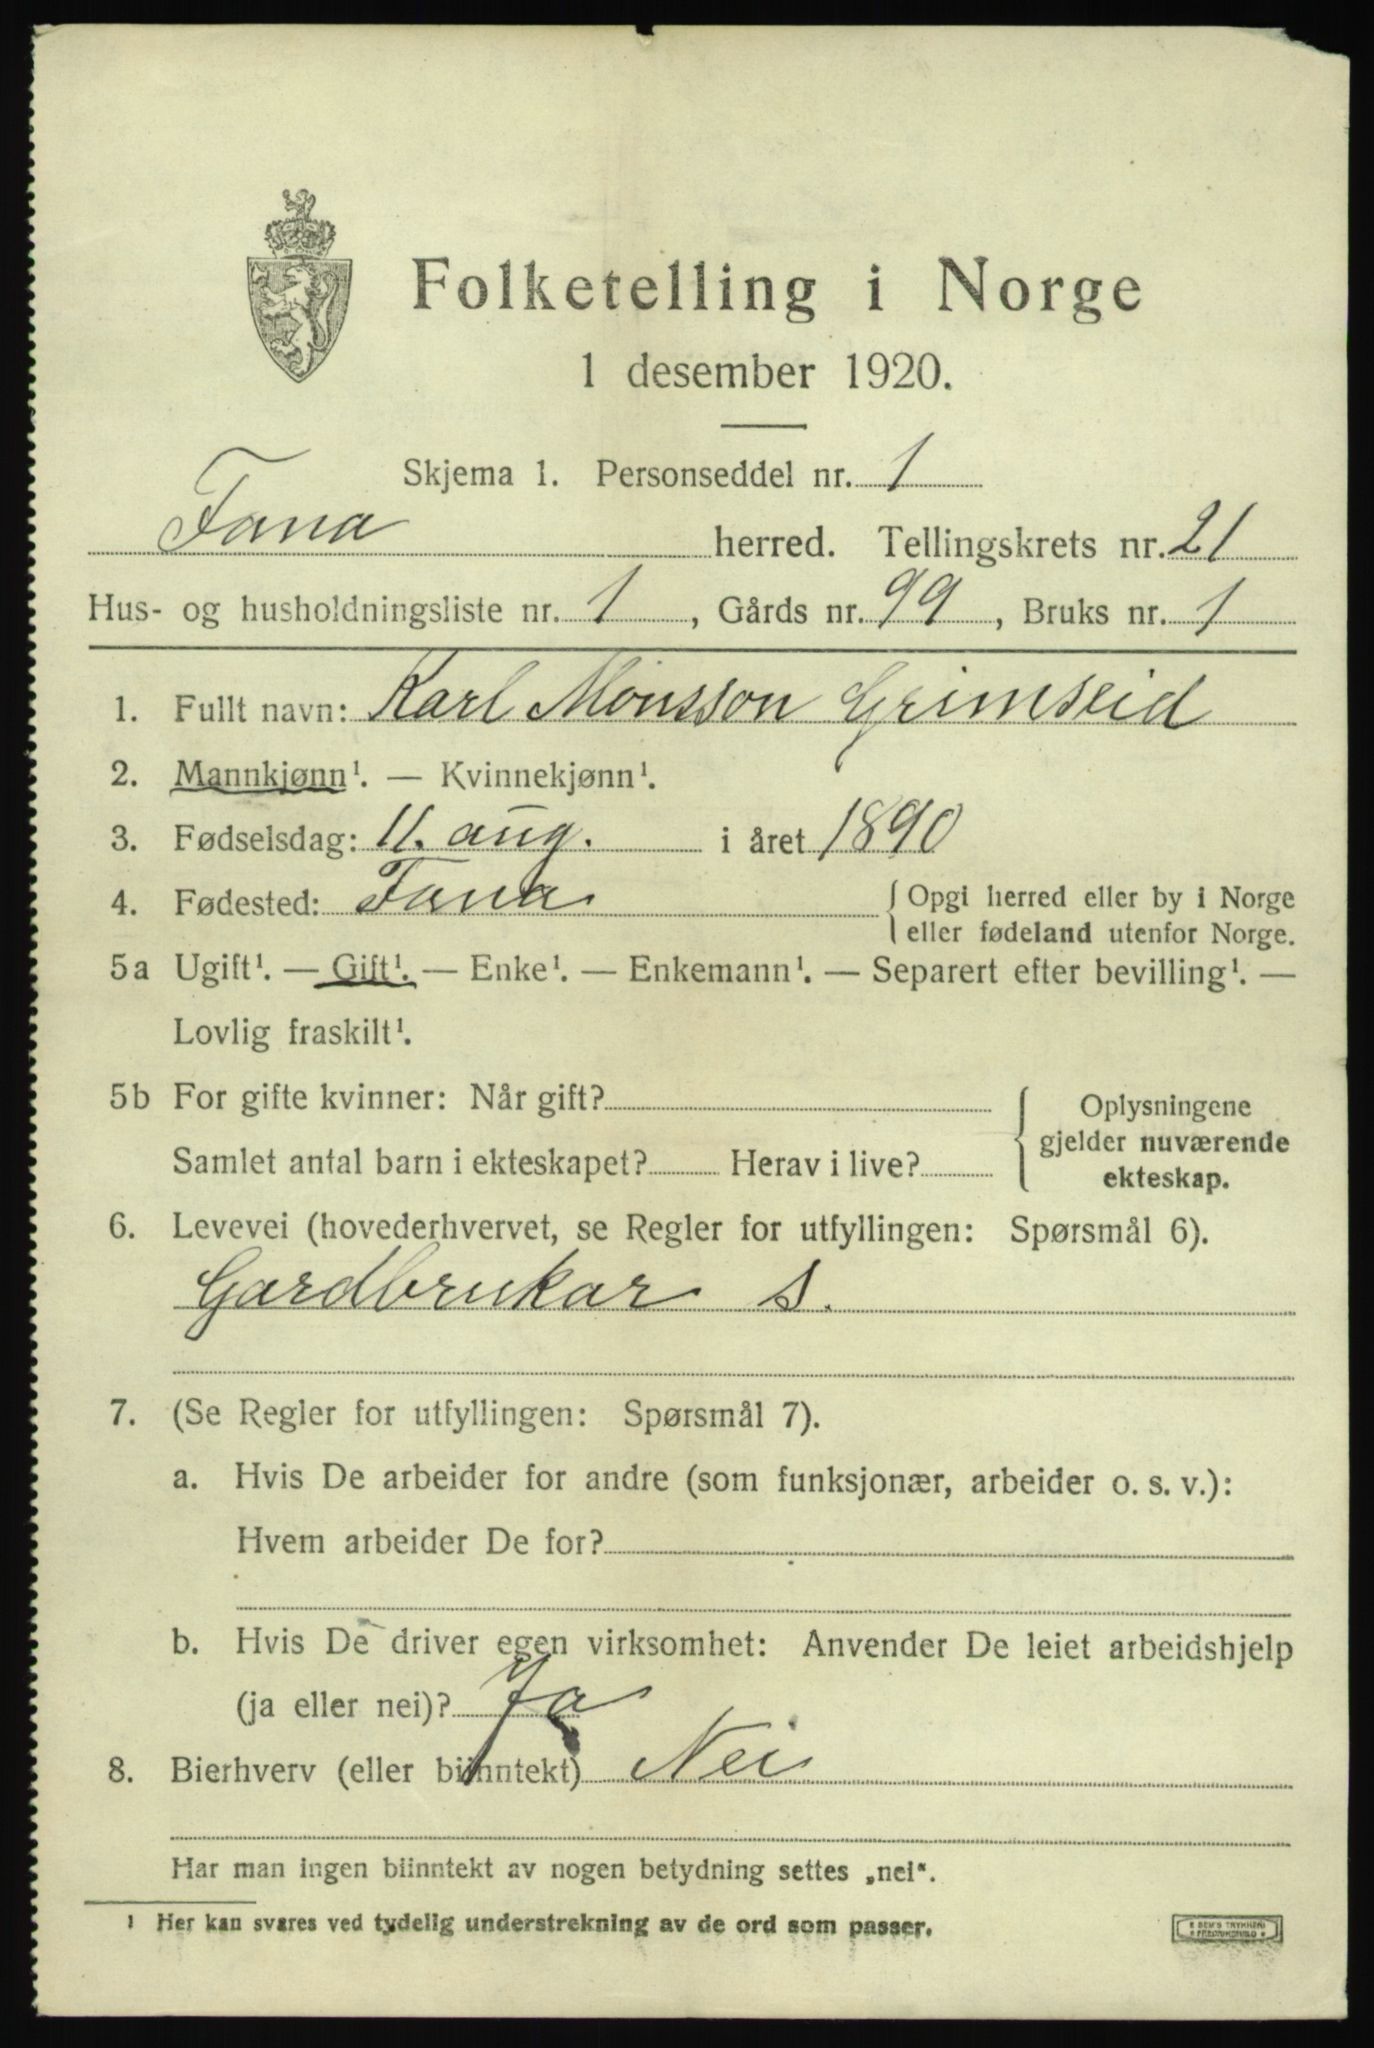 Folketelling i Norge
1 desember 1920.
Skjema 1. Personseddel nr. 1
Fana herred. Tellingskrets nr. 21
Hus- og husholdningsliste nr. 1, Gårds nr. 99, Bruks nr. 1
1. Fullt navn: Karl Monsson Grimseid
2. Mannkjønn¹. — Kvinnekjønn¹.
3. Fødselsdag: 11. aug. i året 1890
4. Fødested: Fana { Opgi herred eller by i Norge
eller fødeland utenfor Norge.
5a Ugift¹. — Gift¹. — Enke¹. — Enkemann¹. — Separert efter bevilling¹. —
Lovlig fraskilt¹.
5b For gifte kvinner: Når gift?
Samlet antal barn i ekteskapet? Herav i live?
{ Oplysningene
gjelder nuværende
ekteskap.
6. Levevei (hovederhvervet, se Regler for utfyllingen: Spørsmål 6).
Gardbrukar s.
7. (Se Regler for utfyllingen: Spørsmål 7).
a. Hvis De arbeider for andre (som funksjonær, arbeider o. s. v.):
Hvem arbeider De for?
b. Hvis De driver egen virksomhet: Anvender De leiet arbeidshjelp
(ja eller nei)? Ja
8. Bierhverv (eller biinntekt) Nei
Har man ingen biinntekt av nogen betydning settes „nei“.
¹ Her kan svares ved tydelig understrekning av de ord som passer.